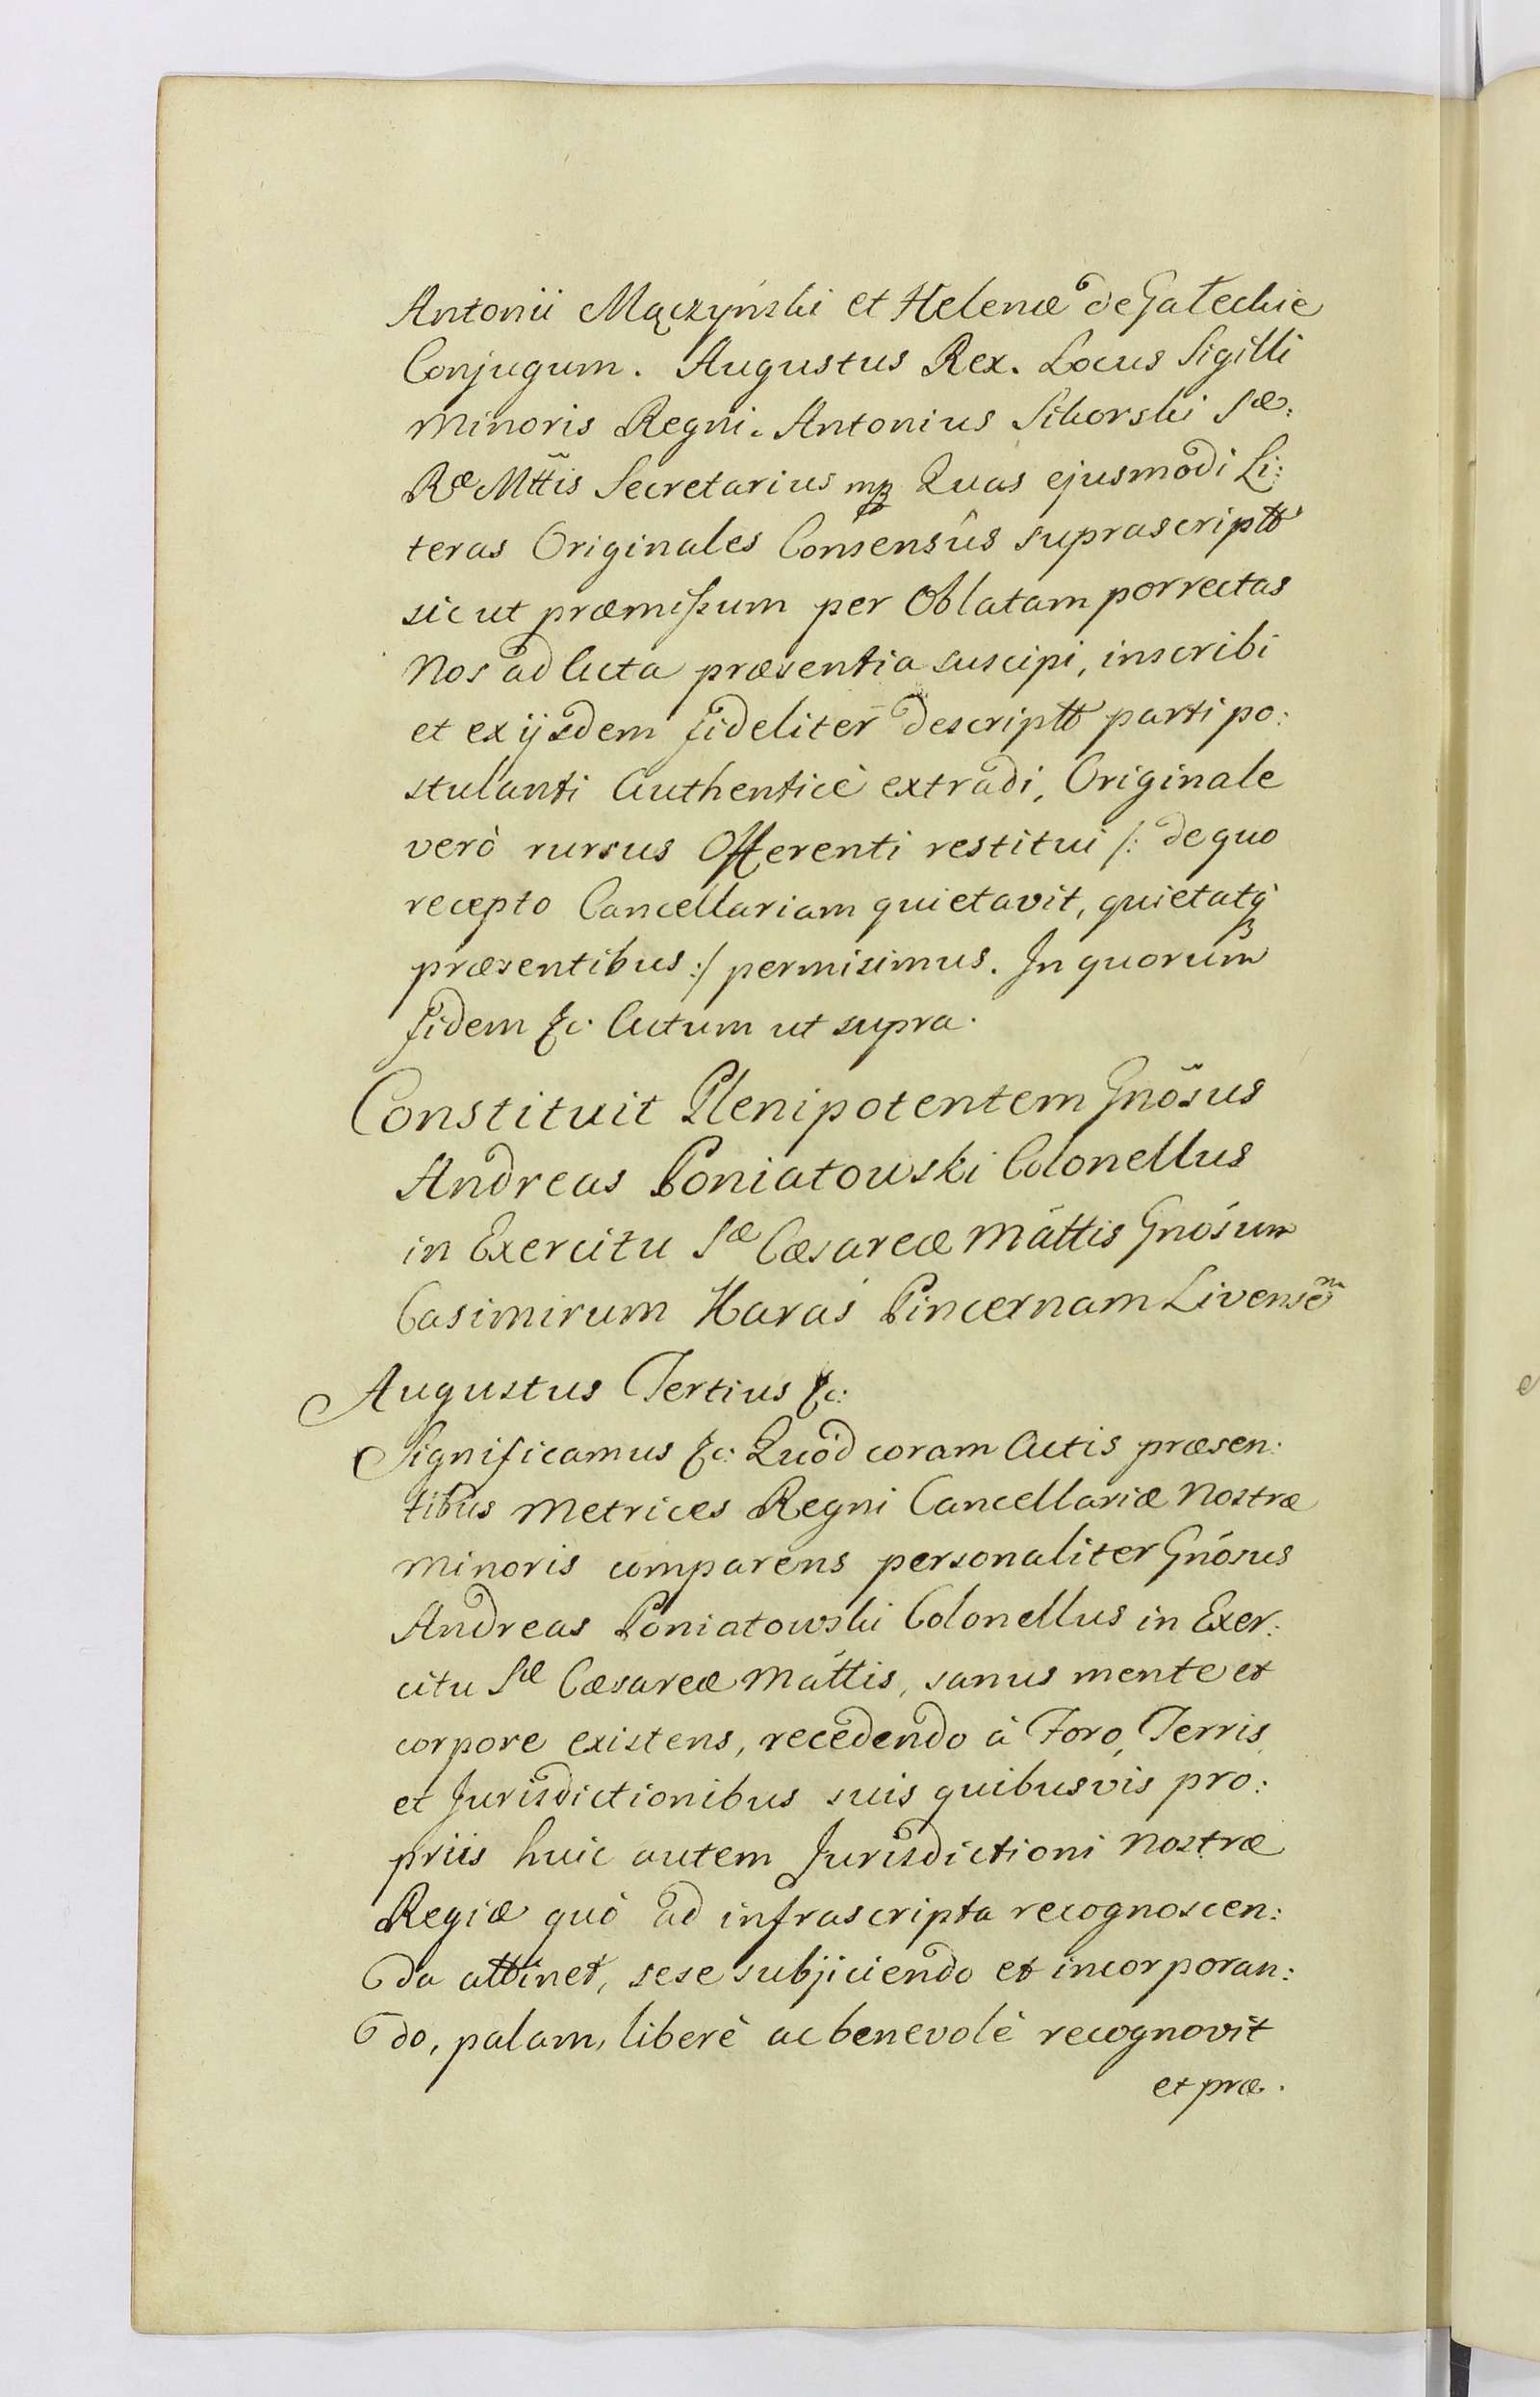 Antonii Mączyński et Helenæ de Gałeckie
Conjugum. Augustus Rex. Locus Sigilli
Minoris Regni. Antonius Sikorski Sæ:
Ræ Mttis Secretarius mp Quas ejusmodi Li:
teras Originales Consensûs suprascriptt
sic ut præmissum per Oblatam porrectas
Nos ad Acta præsentia suscipi, inscribi
et ex ijsdem fideliter descriptt parti po:
stulanti Authenticè extradi, Originale
verò rursus Offerenti restitui /: de quo
recepto Cancellariam quietavit, quietatq
præsentibus :/ permisimus. In quorum
fidem &c. Actum ut supra.
Constituit Plenipotentem Gnõsus
Andreas Poniatowski Colonellus
in Exercitu Sæ Cæsareæ Máttis Gnósum
Casimirum Karaś Pincernam Livensem
Augustus Tertius &c:
Significamus &c: Quòd coram Actis præsen:
tibus Metrices Regni Cancellariæ Nostræ
Minoris comparens personaliter Gnósus
Andreas Poniatowski Colonellus in Exer:
citu Sæ Cæsareæ Máttis, sanus mente et
corpore existens, recedendo à Foro, Terris
et Jurisdictionibus suis quibusvis pro:
priis huic autem Jurisdictioni Nostræ
Regiæ quò ad infrascripta recognoscen:
da attinet, sese subjiciendo et incorporan:
do, palam, liberè ac benevolè recognovit
et præ.